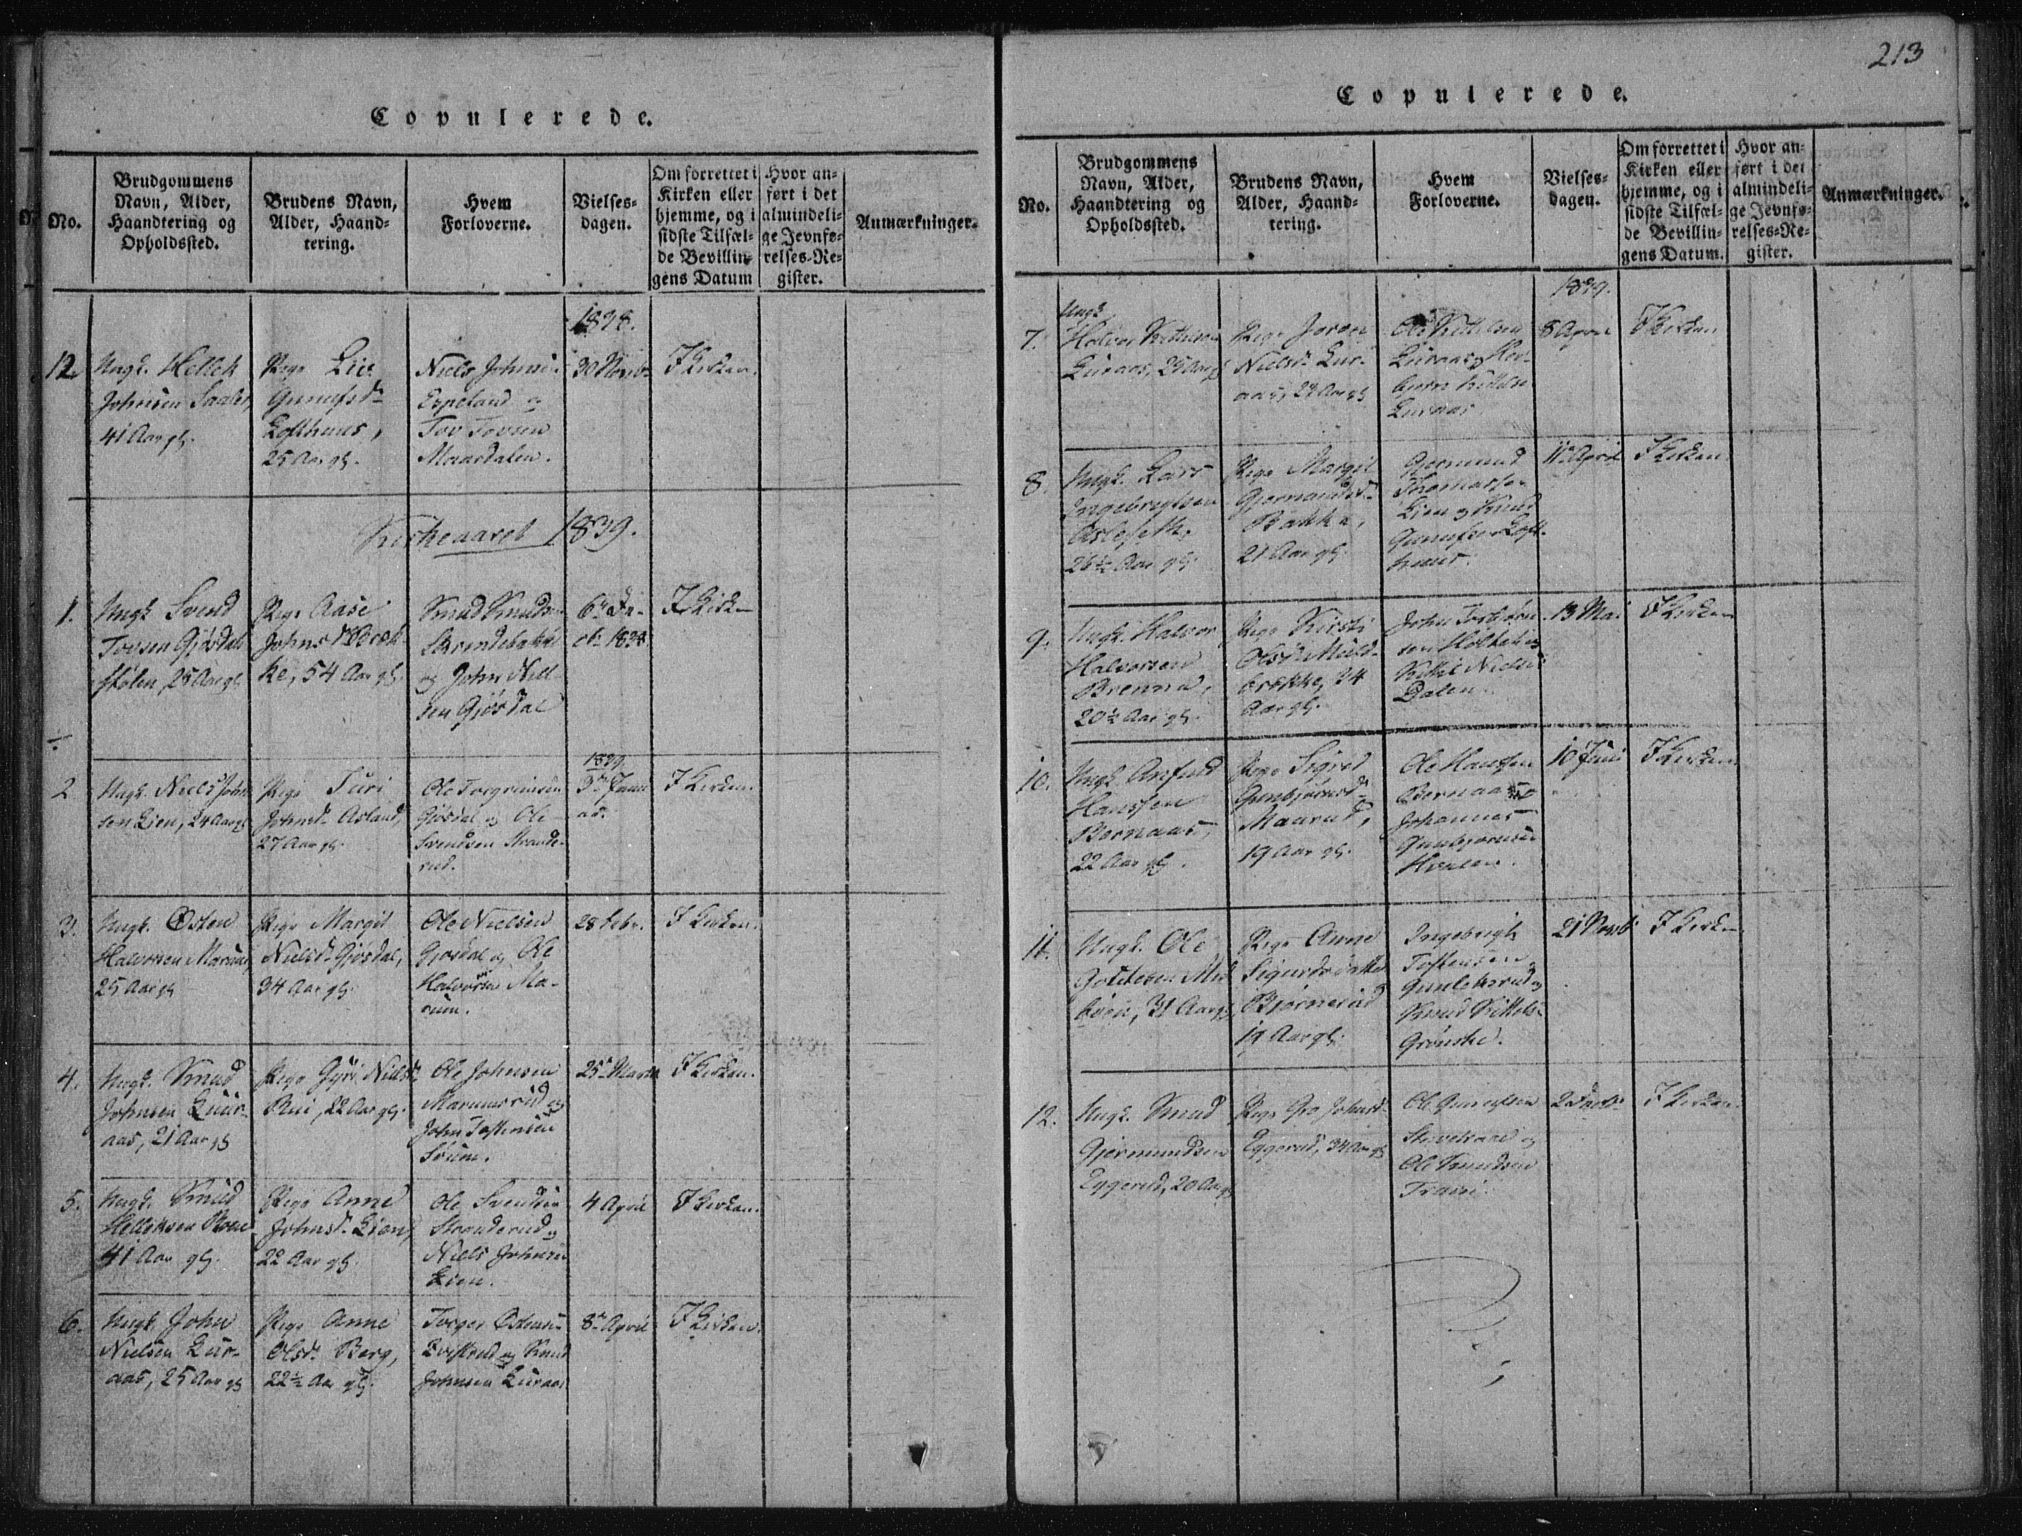 Copulerede.
No.
Brudgommens
Navn, Alder,
Haandtering og
Opholdssted.
Brudens Navn,
Alder, Haand-
tering.
Hvem
Forloverne.
Vielses-
dagen.
Om forrettet i
Kirken eller
hjemme, og i
sidste Tilfæl-
de Bevillin-
gens Datum
Hvor an-
ført i det
almindeli-
ge Jevnfø-
relses-Re-
gister.
Anmærkninger.
1838.
12
Ungk. Hellek
Johnsen
41 Aar gl.
Pige Liv
Gunulfsd.
Lofthuus,
25 Aar gl.
Niels Johnsen
Espeland og
Tov Tovsen
Maardalen.
30 Novb.
I Kirken.
Kirkeaaret 1839.
1.
Ungk. Svend
Tovsen Gjøsdal
stølen, 28 Aar gl.
Pige Aase
Johnsd.
ke, 54 Aar gl.
Knud Knuds
og John Niel
sen Gjøsdal
6te De
cb. 1838
I Kirken
1839
2
Ungk. Niels John
sen Lien, 24 Aar gl
Pige Turi
Johnsd. Asland,
27 Aar gl.
Ole Torgrimsen
Gjøsdal og Ole
Svendsen Strande-
rud.
3die Janu
ar.
I Kirken.
3.
Ungk. Østen
Halvorsen Marum,
25 Aar gl
Pige Margit
Nielsd. Gjøsdal,
34 Aar gl.
Ole Nielsen
Gjøsdal og Ole
Halvorsen Ma-
rum.
28 Febr.
I Kirken.
4.
Ungk. Knud
Johnsen Luur-
aas, 21 Aar gl
Pige Gyri Nielsd.
Rui, 22 Aar gl.
Ole Johnsen
Marumsrud og
John Tostensen
Srum.
25de Marts
I Kirken.
5.
Ungk. Knud
Helleksen
41 Aar gl.
Pige Anne
Johnsd. Lien,
22 Aar gl.
Ole Svendsen
Stranderud og
Niels Johnsen
Lien.
4 April
I Kirken.
6.
Ungk. John
Nielsen Lur-
aas, 25 Aar gl
Pige Anne
Olsd. Berg,
22½ Aar gl.
Torger Østensen
og Knud
Johnsen Luraas
8de April
I Kirken.
213
Copulerede.
No.
Brudgommens
Navn, Alder,
Haandtering og
Opholdssted.
Brudens Navn,
Alder, Haand-
tering.
Hvem
Forloverne.
Vielses-
dagen.
Om forrettet i
Kirken eller
hjemme, og i
sidste Tilfæl-
de Bevillin-
gens Datum.
Hvor an-
ført i det
almindeli-
ge Jevnfø-
relses-Re-
gister.
Anmærkninger.
1839.
7.
Ungk.
Halvor Kittilsen
Luraas, 25 Aar gl
Pige Joron
Nielsd. Lur-
aas, 24 Aar gl
Ole Kittilsen
Luraas og Her-
bjørn Kittilse
Luraas
8 April
I Kirken
8.
Ungk. Lars
Ingebregtsen
26½ Aar gl.
Pige Margit
Gjermundsd.
Bakke,
21 Aar gl.
Gjermund
Thomassen
Lien og Knud
Gunulfsen Loft-
huus.
11te April
I Kirken.
9.
Ungk. Halvor
Halvorsen
Brenna,
20½ Aar gl
Pige Kirsti
Olsd. Muld-
brække, 24
Aar gl.
John Torbjørn
sen og
Kittil Niels
Dalen.
13 Mai
I Kirken
10.
Ungk. Anfind
Hanssen
Bernaas,
22 Aar gl.
Pige Sigrid
Gunbjørnsd.
Maurud,
19 Aar gl.
Ole Hanssen
Bernaas og
Johannes
Gunbjørnsen
10 Juni
I Kirken
11.
Ungk. Ole
31 Aar gl
Pige Anne
Sigurdsdatter
Bjørnerud
19 Aar gl.
Ingebrigt
Tostensen
Gunleksrud og
Knud Kittels
Grønske.
21 Novb.
I Kirken.
12.
Ungk. Knud
Gjermundsen
Eggerud, 20 Aar gl
Pige Gro Johnsd.
Eggerud, 34 Aar gl
Ole Gunulfsen
og
Ole Knudsen
I Kirken.